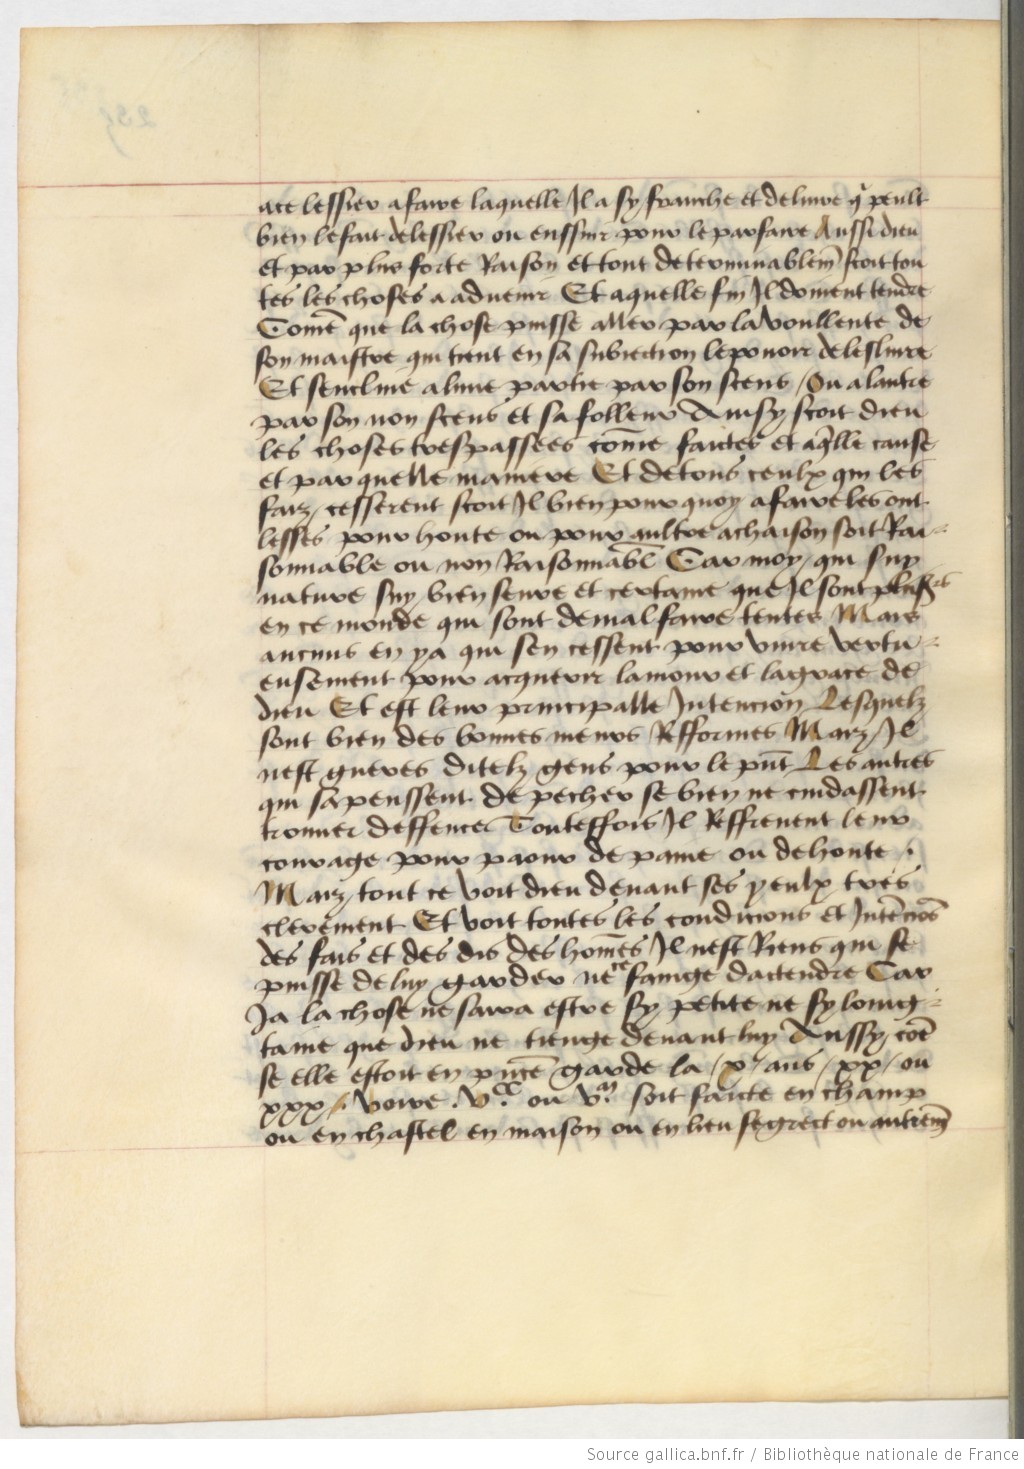 ace lessier a faire laquelle Il a sy franche et delivre q̄ peult
bien le fait delessier ou ensuir pour le parfaire Aussi dieu
et par plus forte Raison et tout determinablem̄ scoit tou
tes les choses a advenir Et aquelle fin Il doivent tendre
Com̄e que la chose puisse aller par la voullente de
son maistre qui tient en sa subiection le pouoir de leslire
Et sencline a lune partie par son scens / Ou a lautre
par son non scens et sa folleur Ainsy scoit dieu
les choses trespassees com̄e faictes et a q̄lle cause
et par quelle maniere Et de tous ceulx qui les
faiz / cesserent scoit Il bien pour quoy a faire les ont
lesses pour honte ou pour aultre achaison soit Rai-
sonnable ou non Raisonnabl̄ Car moy / qui suy
nature suy bien seure et certaine que Il sont
en ce monde qui sont de mal faire tentes Mais
aucuns en ya qui sen cessent pour vivre vertu-
eusement pour acquerir lamour et la grace de
dieu Et est leur principalle Intencion Lesquelz
sont bien des bonnes meurs Refformes Maiz / Il
nest gueres ditelz gens pour le pn̄t Les autres
qui sapenssent de pecher se bien ne cuidassent
trouver deffence Touteffois Il Reffrenent leur
courage pour paour de paine ou de honte .
Maiz / tout ce voit dieu devant ses yeulx tres
clerement Et voit toutes les condicions et Intēcios̄
des fais et des dis des hom̄es Il nest Riens qui se
puisse de luy garder ne fainge dactendre Car
Ja la chose ne sara estre sy petite ne sy loing-
taine que dieu ne tienge devant luy Aussy / cōe
se elle estoit en pn̄ce garde la / x / ans / xx / ou
xxx / . voire . v.ᶜ ou v.ᵐ soit faicte en champ
ou en chastel en maison ou en lieu segrect ou autrem̄